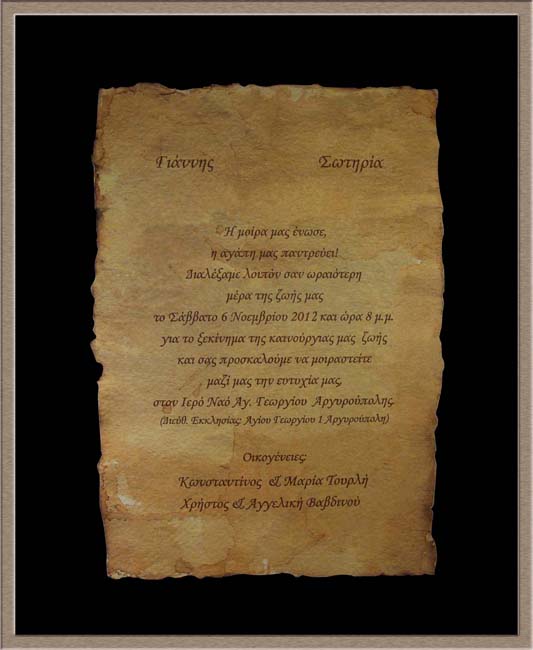 Γιάννης Σωτηρία
Η μοίρα μας ένωσε,
η αγάπη μας παντρεύει!
Διαλέξαμε λοιπόν σαν ωραιότερη
μέρα της ζωής μας
το Σάββατο 6 Νοεμβρίου 2012 και ώρα 8 μ.μ.
για το ξεκίνημα της καινούργιας μας ζωής
και σας προσκαλούμε να μοιραστείτε
μαζί μας την ευτυχία μας,
στον Ιερό Ναό Αγ. Γεωργίου Αργυρούπολης.
(Διεύθ. Εκκλησίας: Αγίου Γεωργίου 1 Αργυρούπολη)
Οικογένειες:
Κωνσταντίνος & Μαρία Τουρλή
Χρήστος & Αγγελική Βαβδινού